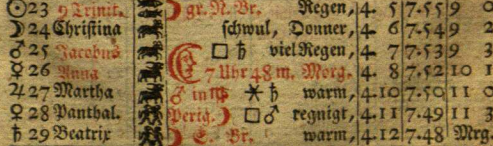 ☉ 23 9 Trinit. ☽ gr. N. Br. Regen, 4. 5 7.55 9
☽ 24 Christina schwul, Donner, 4. 6 7.54 9 2
♂ 25 Jacobus □ ♄ viel Regen, 4. 7 7.53 9 3
☿ 26 Anna 7 Uhr 48 m. Morg. 4. 8 7.52 10 1
♃ 27 Martha ♂ in ♍ ✶ ♄ warm, 4.10 7.50 11 0
♀ 28 Panthal. Pertg. ☽ □ ♂ regnigt, 4.11 7.49 11 3
♄ 29 Beatrix ☽ E. Br. warm, 4.12 7.48 Mrg.